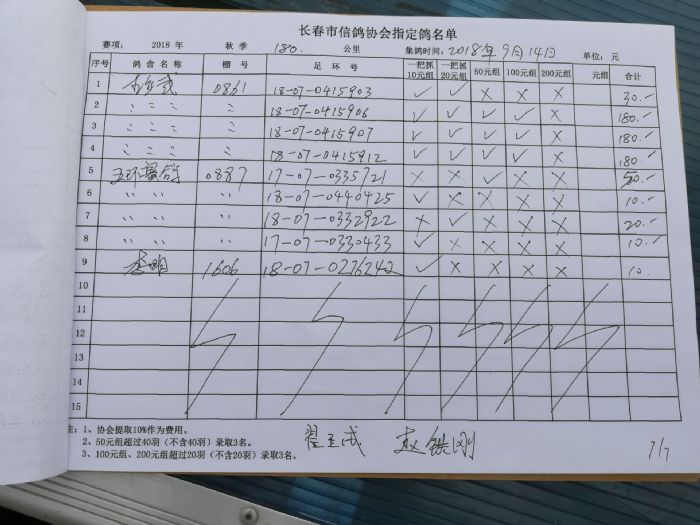 长春市信鸽协会指定鸽名单
赛项： 2018 年 秋 季 180. 公里 集鸽时间：2018年9月14日 单位：元
序号 鸽 舍 名 称 棚 号 足 环 号 一把抓10元组 一把抓20元组 50元组 100元组 200元组 元组 合计
1 0861 18-07-0415903 ✓ ✓ × × × 30.-
2 〃 〃 〃 〃 18-07-0415906 ✓ ✓ ✓ ✓ × 180.-
3 〃 〃 〃 〃 18-07-0415907 ✓ ✓ ✓ ✓ × 180.-
4 〃 〃 〃 〃 18-07-0415912 ✓ ✓ ✓ ✓ × 180.-
5 五环赛鸽 0887 17-07-0335721 × × ✓ × × 50.-
6 〃 〃 〃 〃 18-07-0440425 ✓ × × × × 10.-
7 〃 〃 〃 〃 18-07-0332922 × ✓ × × × 20.-
8 〃 〃 〃 〃 17-07-0330433 ✓ × × × × 10.-
9 李明 1606 18-07-0276242 ✓ × × × × 10.
10
11
12
13
14
15
注：1、协会提取10%作为费用。
2、50元组超过40羽（不含40羽）录取3名。
3、100元组、200元组超过20羽（不含20羽）录取3名。
翟玉成 赵铁刚 7/7